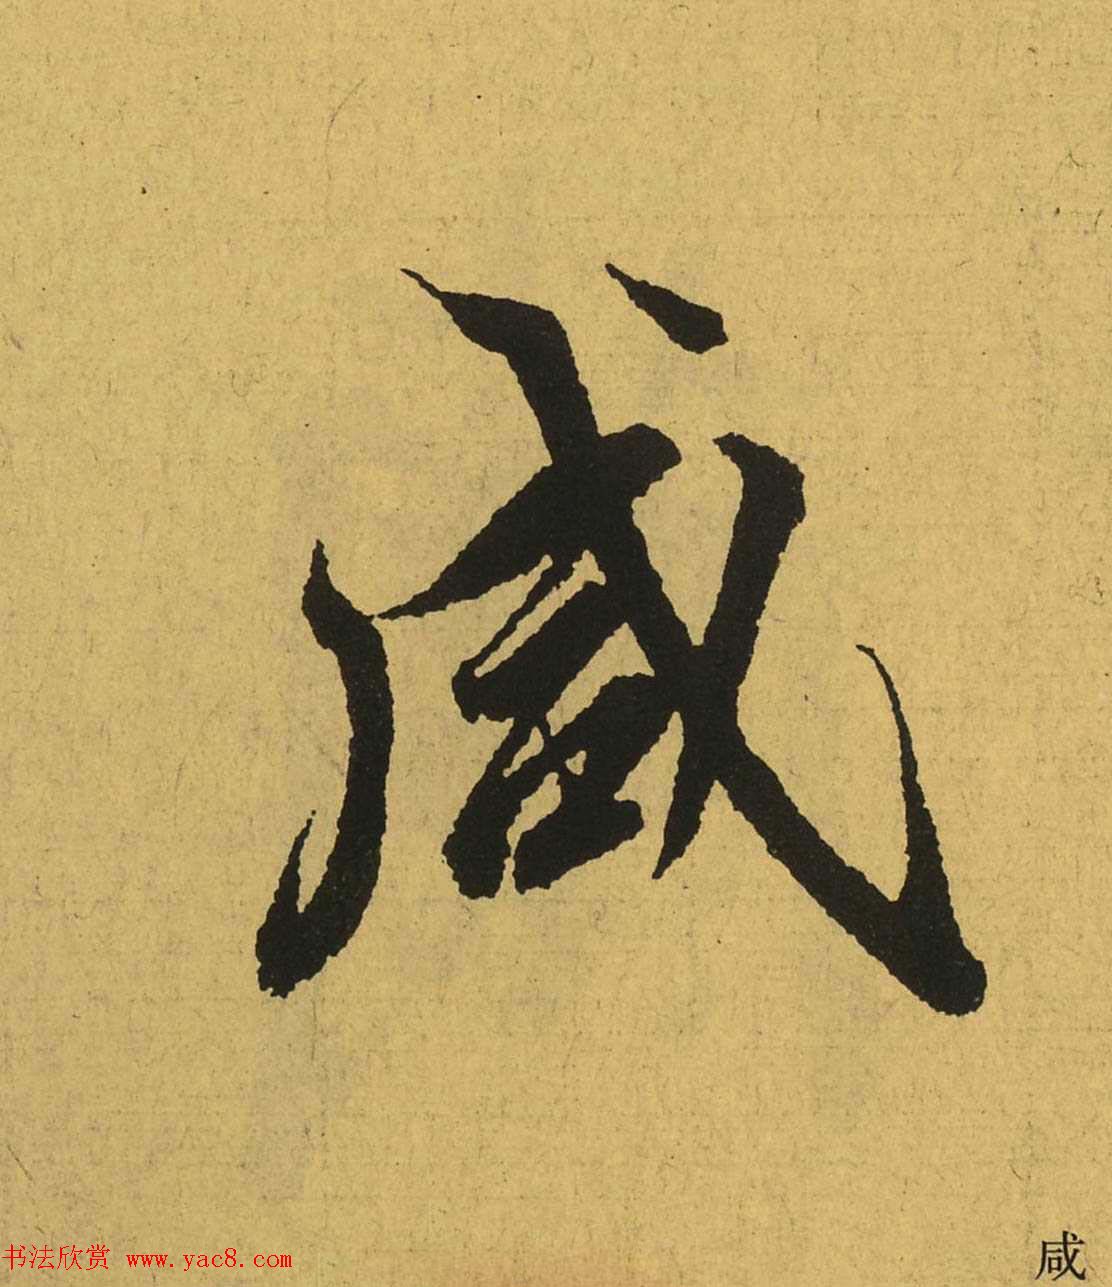 咸
书法欣赏 www.yac8.com
咸